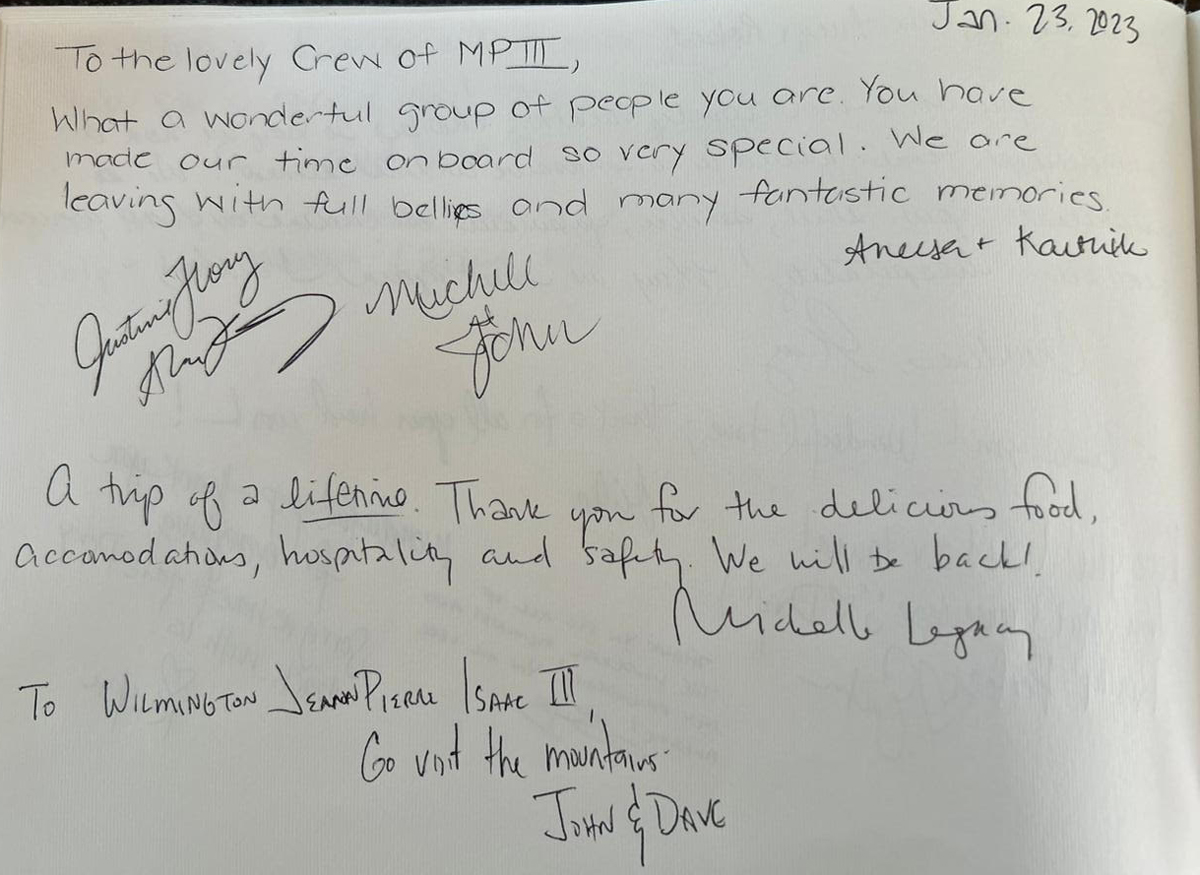 Jan. 23, 2023
To the lovely Crew of MP III,
What a wonderful group of people you are. You have
made our time onboard so very special. We are
leaving with full bellies and many fantastic memories.
Aneesa + Kartik
Justine
Michell
John
A trip of a lifetime. Thank you for the delicious food,
accomodations, hospitality and safety. We will be back!
Michelle
To WILMINGTON JEANNPIERRE ISAAC III,
Go visit the mountains.
JOHN & DAVE